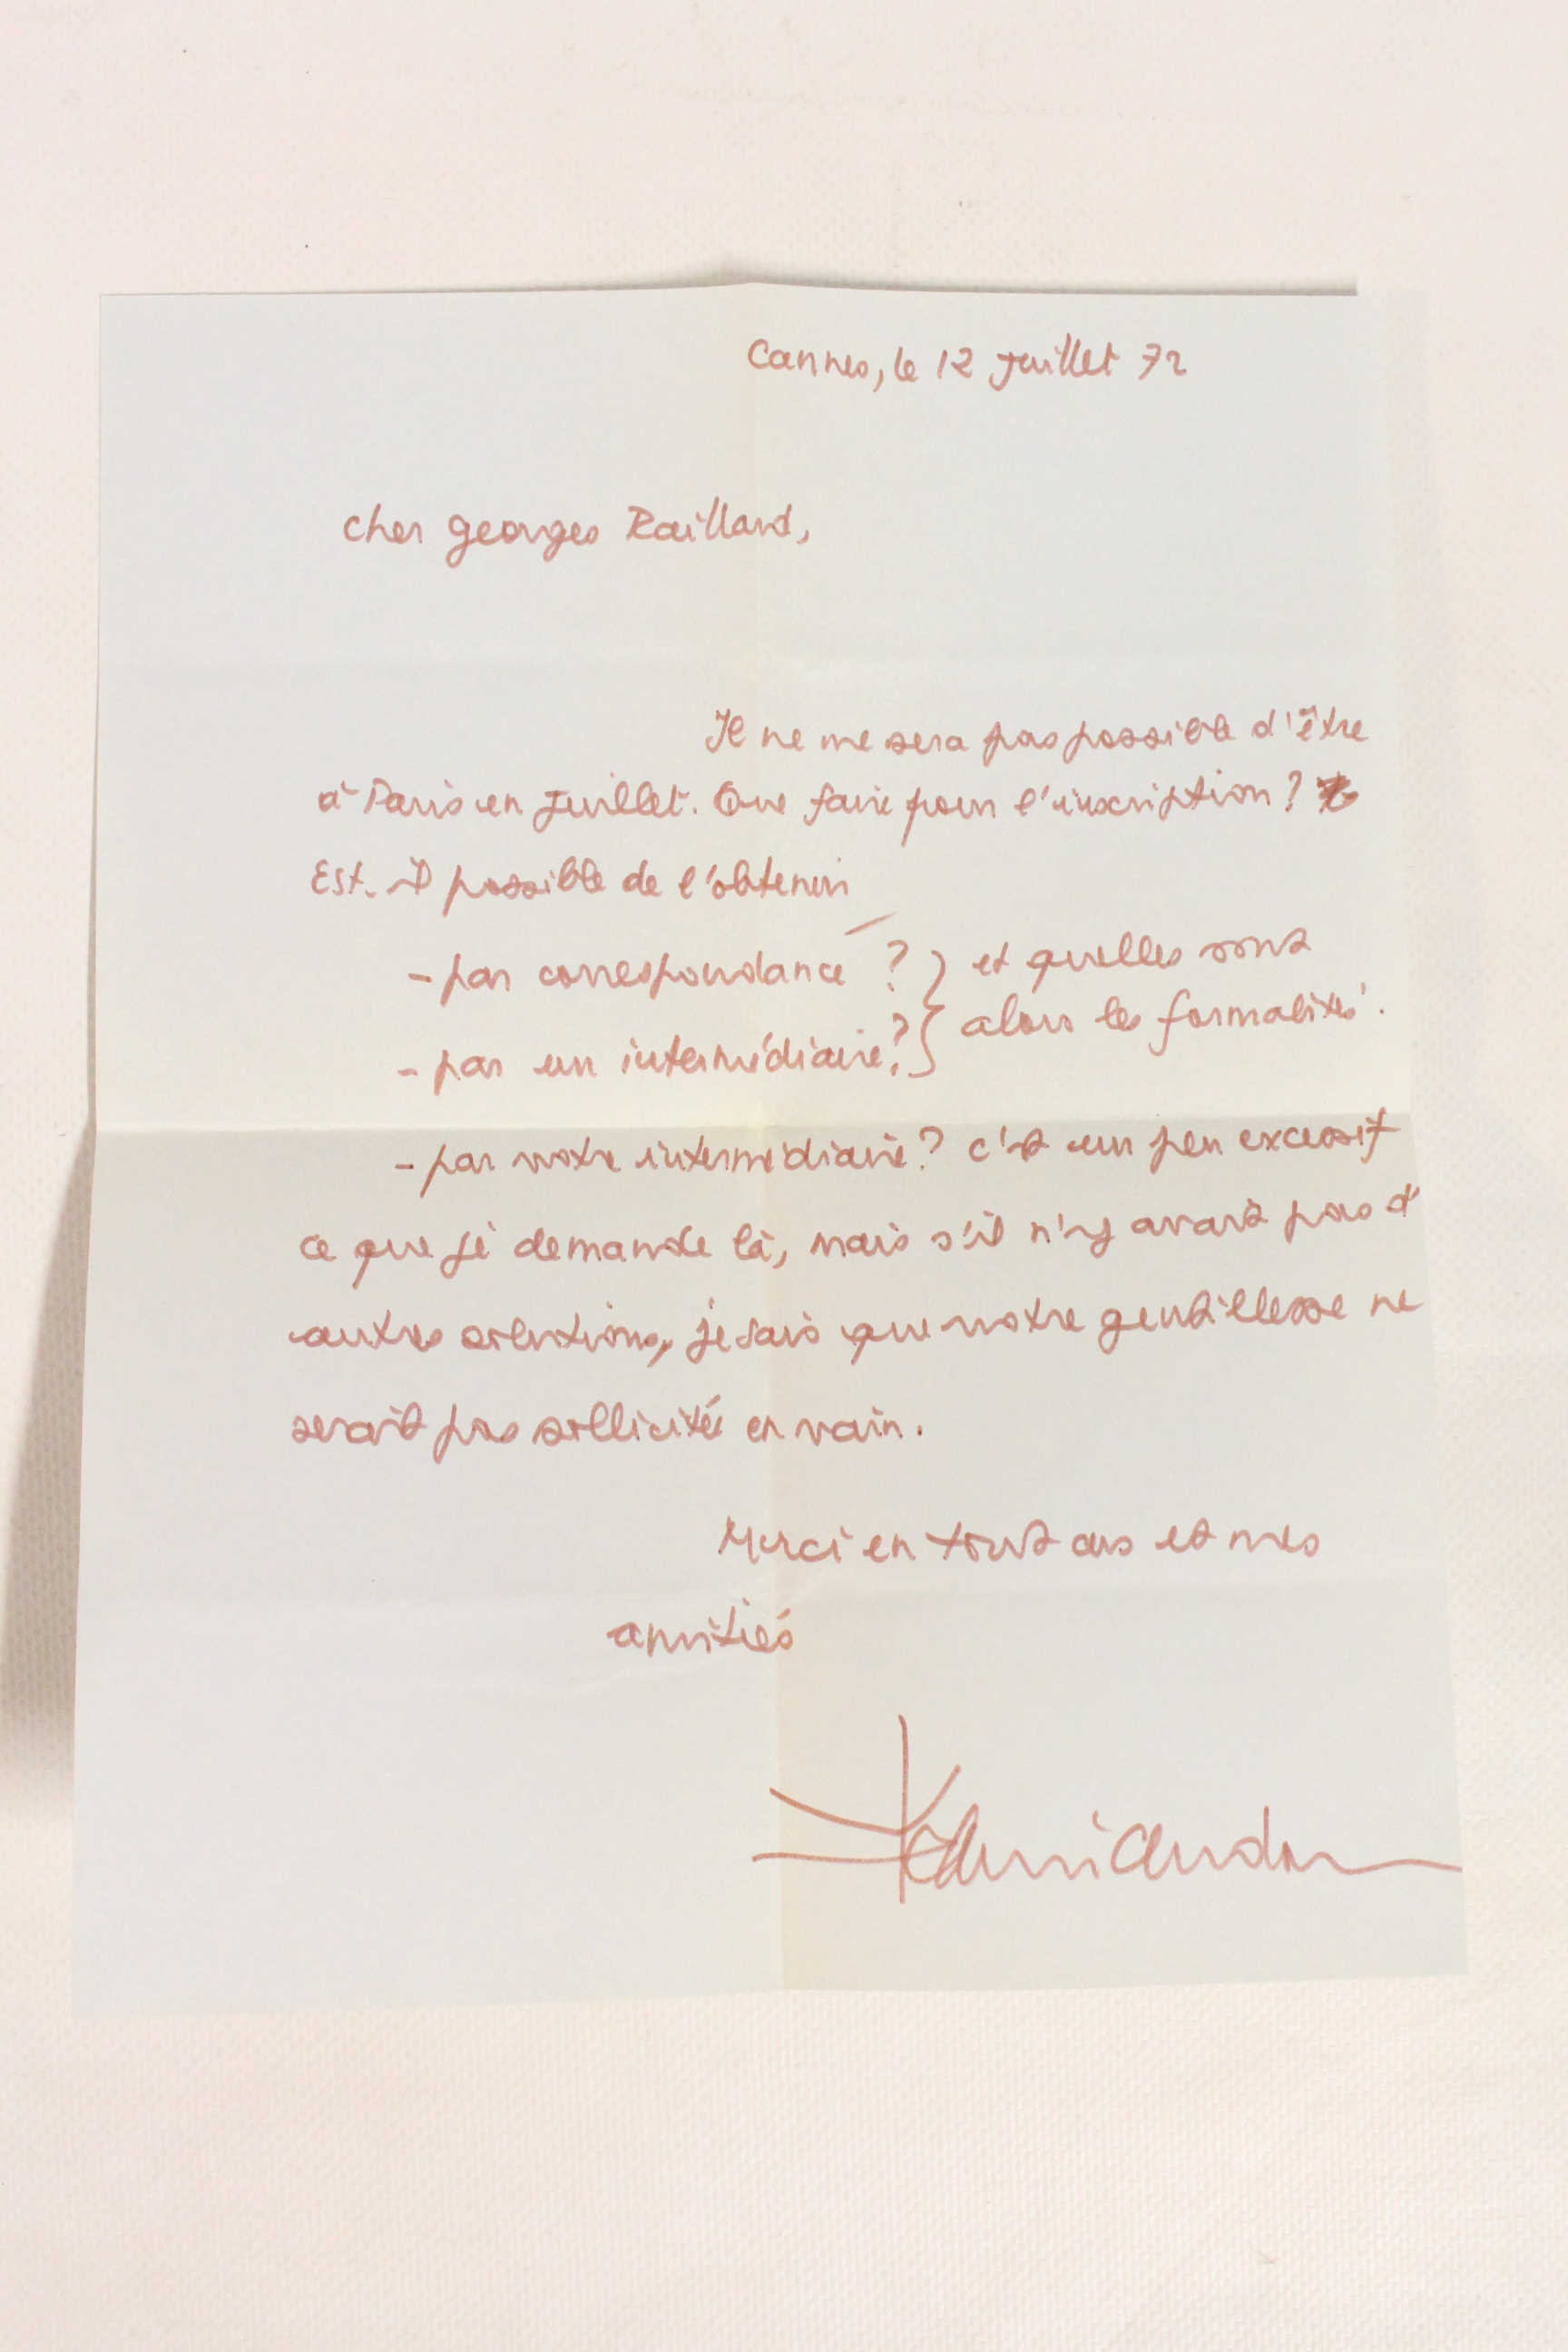 Cannes, le 12 Juillet 72
Cher Georges Raillard,
Il ne me sera pas possible d'être
à Paris en Juillet. Que faire pour l'inscription ?
Est-il possible de l'obtenir
- par correspondance ? } et quelles sont
- par un intermédiaire ? } alors les formalités.
- par votre intermédiaire ? c'est un peu excessif
ce que je demande là, mais s'il n'y avait pas d'
autres solutions, je sais que votre gentillesse ne
serait pas sollicitée en vain.
Merci en tout cas et mes
amitiés